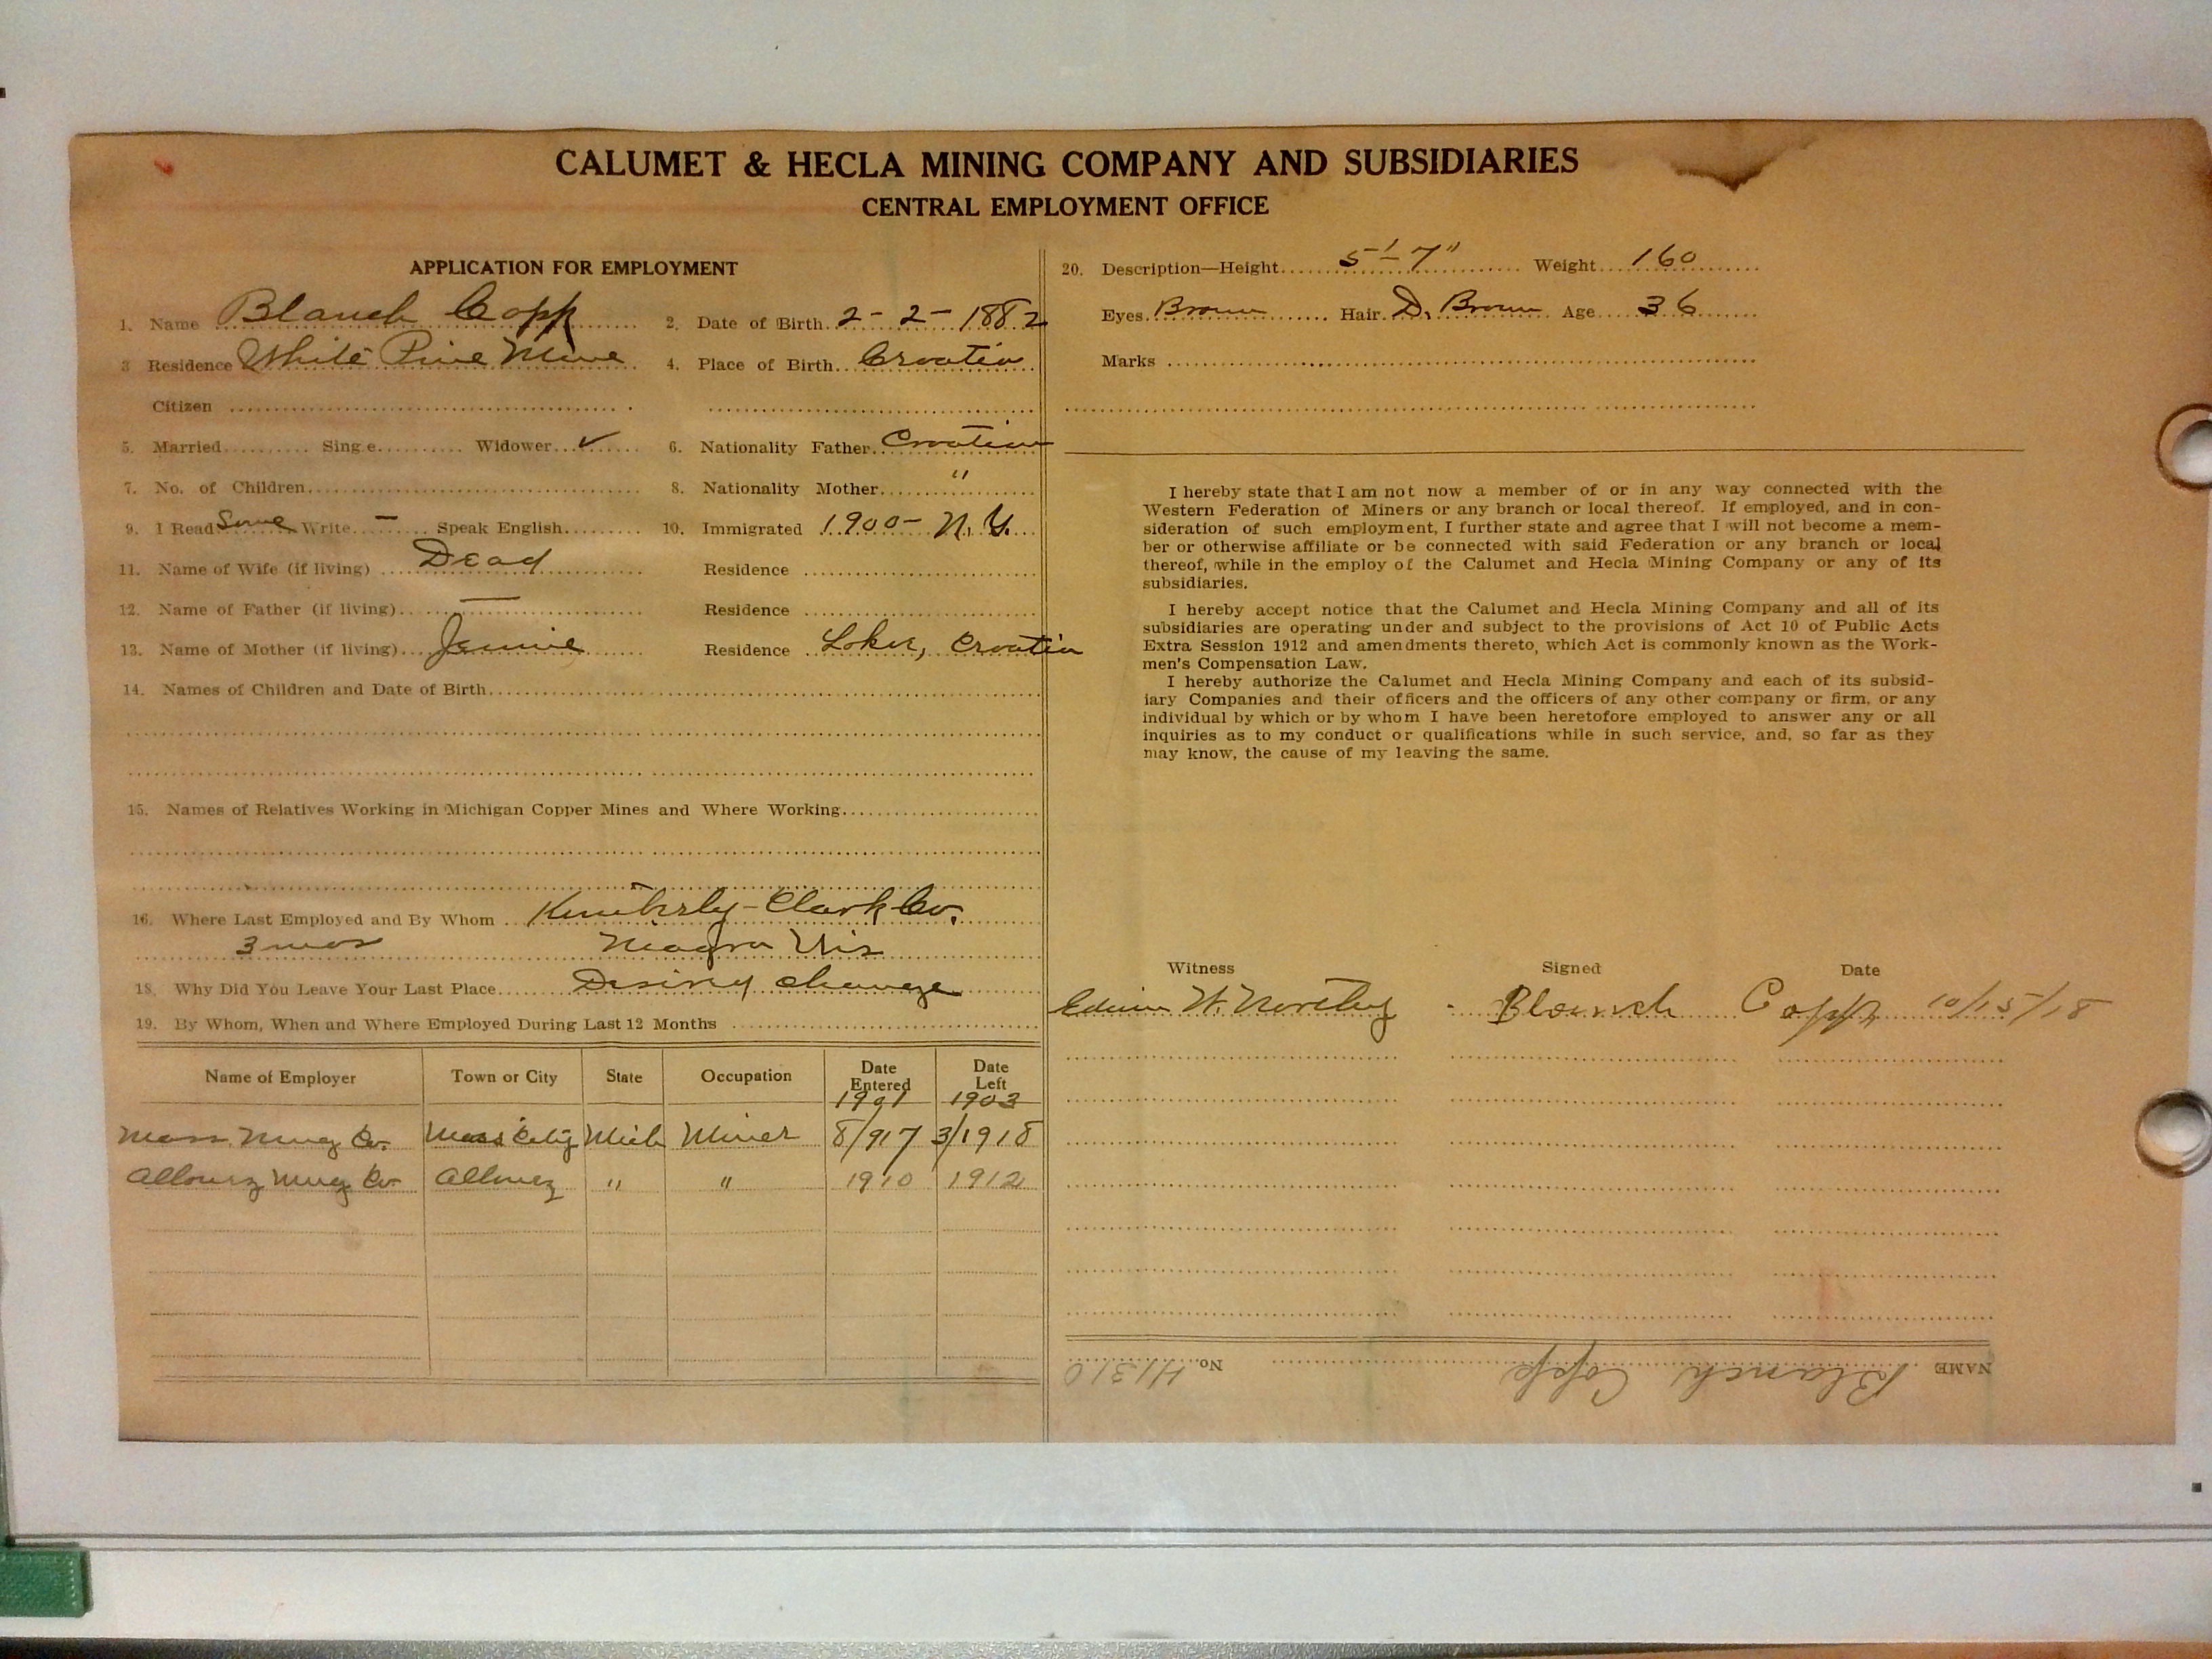 CALUMET & HECLA MINING COMPANY AND SUBSIDIARIES
CENTRAL EMPLOYMENT OFFICE
APPLICATION FOR EMPLOYMENT
1. Name Blanch Copp 2. Date of Birth 2-2-1882
3 Residence White Pine Mine 4. Place of Birth Croatia
Citizen
5. Married Sing e Widower ✓ 6. Nationality Father Croatian
7. No. of Children 8. Nationality Mother "
9. I Read Some Write - Speak English 10. Immigrated 1900- N.Y.
11. Name of Wife (if living) Dead Residence
12. Name of Father (if living) — Residence
13. Name of Mother (if living) Jennie Residence Loker, Croatia
14. Names of Children and Date of Birth
15. Names of Relatives Working in Michigan Copper Mines and Where Working
16. Where Last Employed and By Whom Kimberly-Clark Co.
3 mos Niagra Wis
18. Why Did You Leave Your Last Place Desired change
19. By Whom, When and Where Employed During Last 12 Months
Name of Employer Town or City State Occupation Date Entered Date Left
1901 1903
Mass Mng Co. Mass City Mich Miner 8/917 3/1918
Allouez Mng Co Allouez " " 1910 1912
20. Description—Height 5'-7" Weight 160
Eyes Brown Hair D. Brown Age 36
Marks
I hereby state that I am not now a member of or in any way connected with the
Western Federation of Miners or any branch or local thereof. If employed, and in con-
sideration of such employment, I further state and agree that I will not become a mem-
ber or otherwise affiliate or be connected with said Federation or any branch or local
thereof, while in the employ of the Calumet and Hecla Mining Company or any of its
subsidiaries.
I hereby accept notice that the Calumet and Hecla Mining Company and all of its
subsidiaries are operating under and subject to the provisions of Act 10 of Public Acts
Extra Session 1912 and amendments thereto, which Act is commonly known as the Work-
men's Compensation Law.
I hereby authorize the Calumet and Hecla Mining Company and each of its subsid-
iary Companies and their officers and the officers of any other company or firm, or any
individual by which or by whom I have been heretofore employed to answer any or all
inquiries as to my conduct or qualifications while in such service, and, so far as they
may know, the cause of my leaving the same.
Witness Signed Date
Edwin W. Northey Blanch Copp 10/15/18
NAME Blanch Copp No. 41310